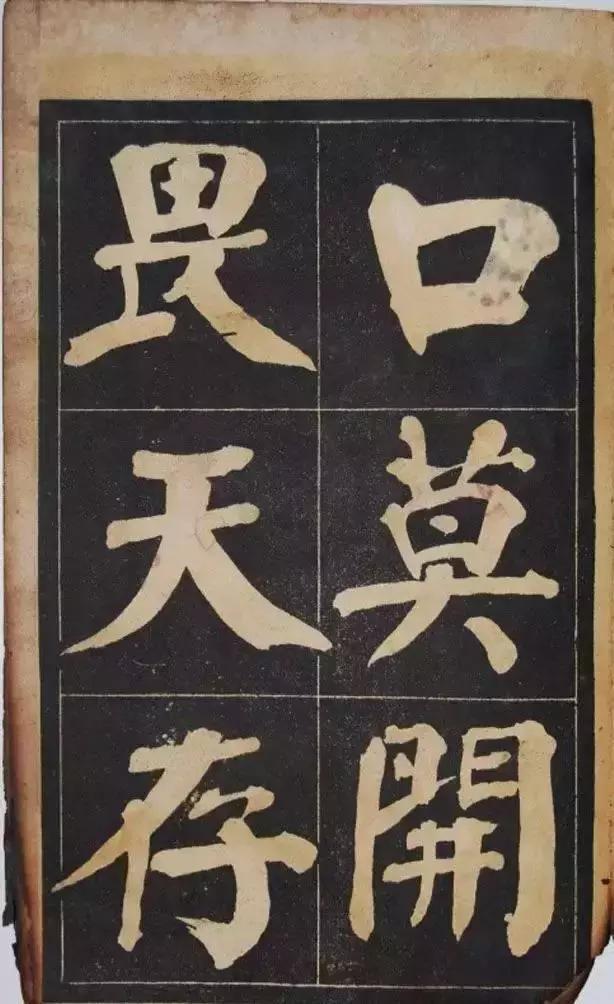 口莫開
畏天存